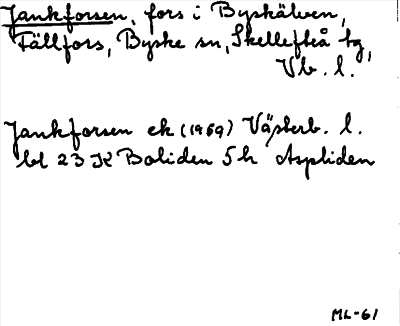 Jankforsen, fors i Byskälven,
Fällfors, Byske sn, Skellefteå tg,
Vb. l.
Jankforsen ek (1969) Västerb. l.
bl 23 K Boliden 5 h Aspliden
ML-61